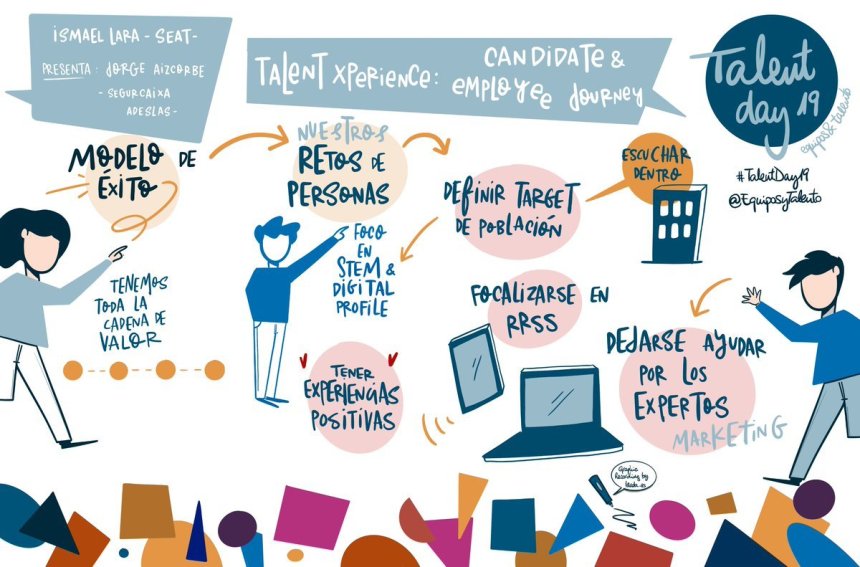 ISMAEL LARA - SEAT-
PRESENTA: JORGE AIZCORBE
- SEGURCAIXA
ADESLAS-
TALENT XPERIENCE:
CANDIDATE &
EMPLOYEE JOURNEY
Talent
day 19
equipos & talento
#TalentDay19
@EquiposyTalento
MODELO DE
ÉXITO
TENEMOS
TODA LA
CADENA DE
VALOR
NUESTROS
RETOS DE
PERSONAS
FOCO
EN
STEM &
DIGITAL
PROFILE
TENER
EXPERIENCIAS
POSITIVAS
DEFINIR TARGET
DE POBLACIÓN
ESCUCHAR
DENTRO
FOCALIZARSE EN
RRSS
DEJARSE AYUDAR
POR LOS
EXPERTOS
MARKETING
Graphic
Recording by